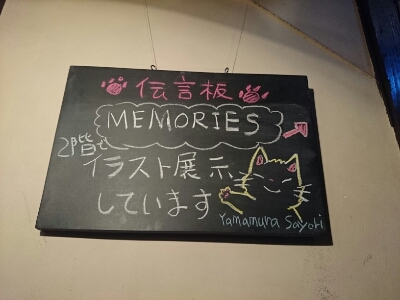 伝言板
MEMORIES
2階で
イラスト展示
しています
Yamamura Sayori